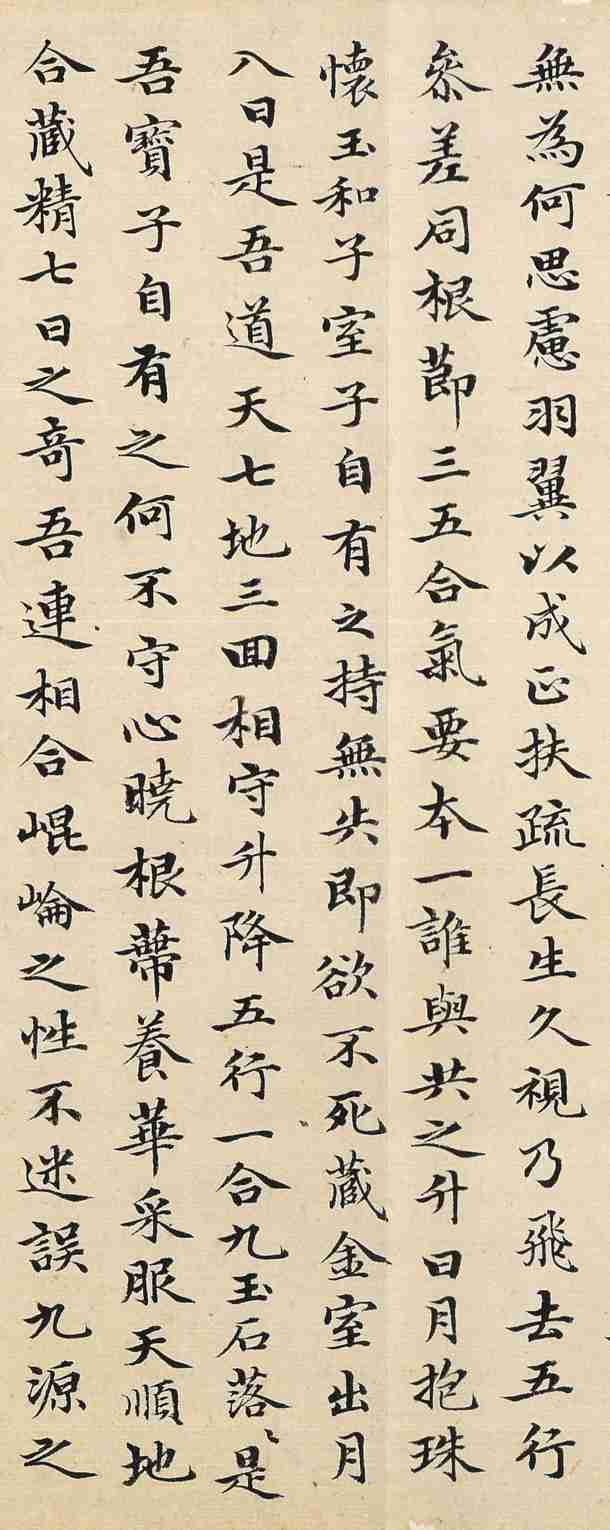 無為何思慮羽翼以成正扶疏長生久視乃飛去五行
叅差同根莭三五合氣要夲一誰與共之升日月抱珠
懷玉和子室子自有之持無失即欲不死藏金室出月
入日是吾道天七地三囬相守升降五行一合九玉石落〻是
吾寶子自有之何不守心曉根蔕養華采服天順地
合藏精七日之奇吾連相合崐崘之性不迷誤九源之